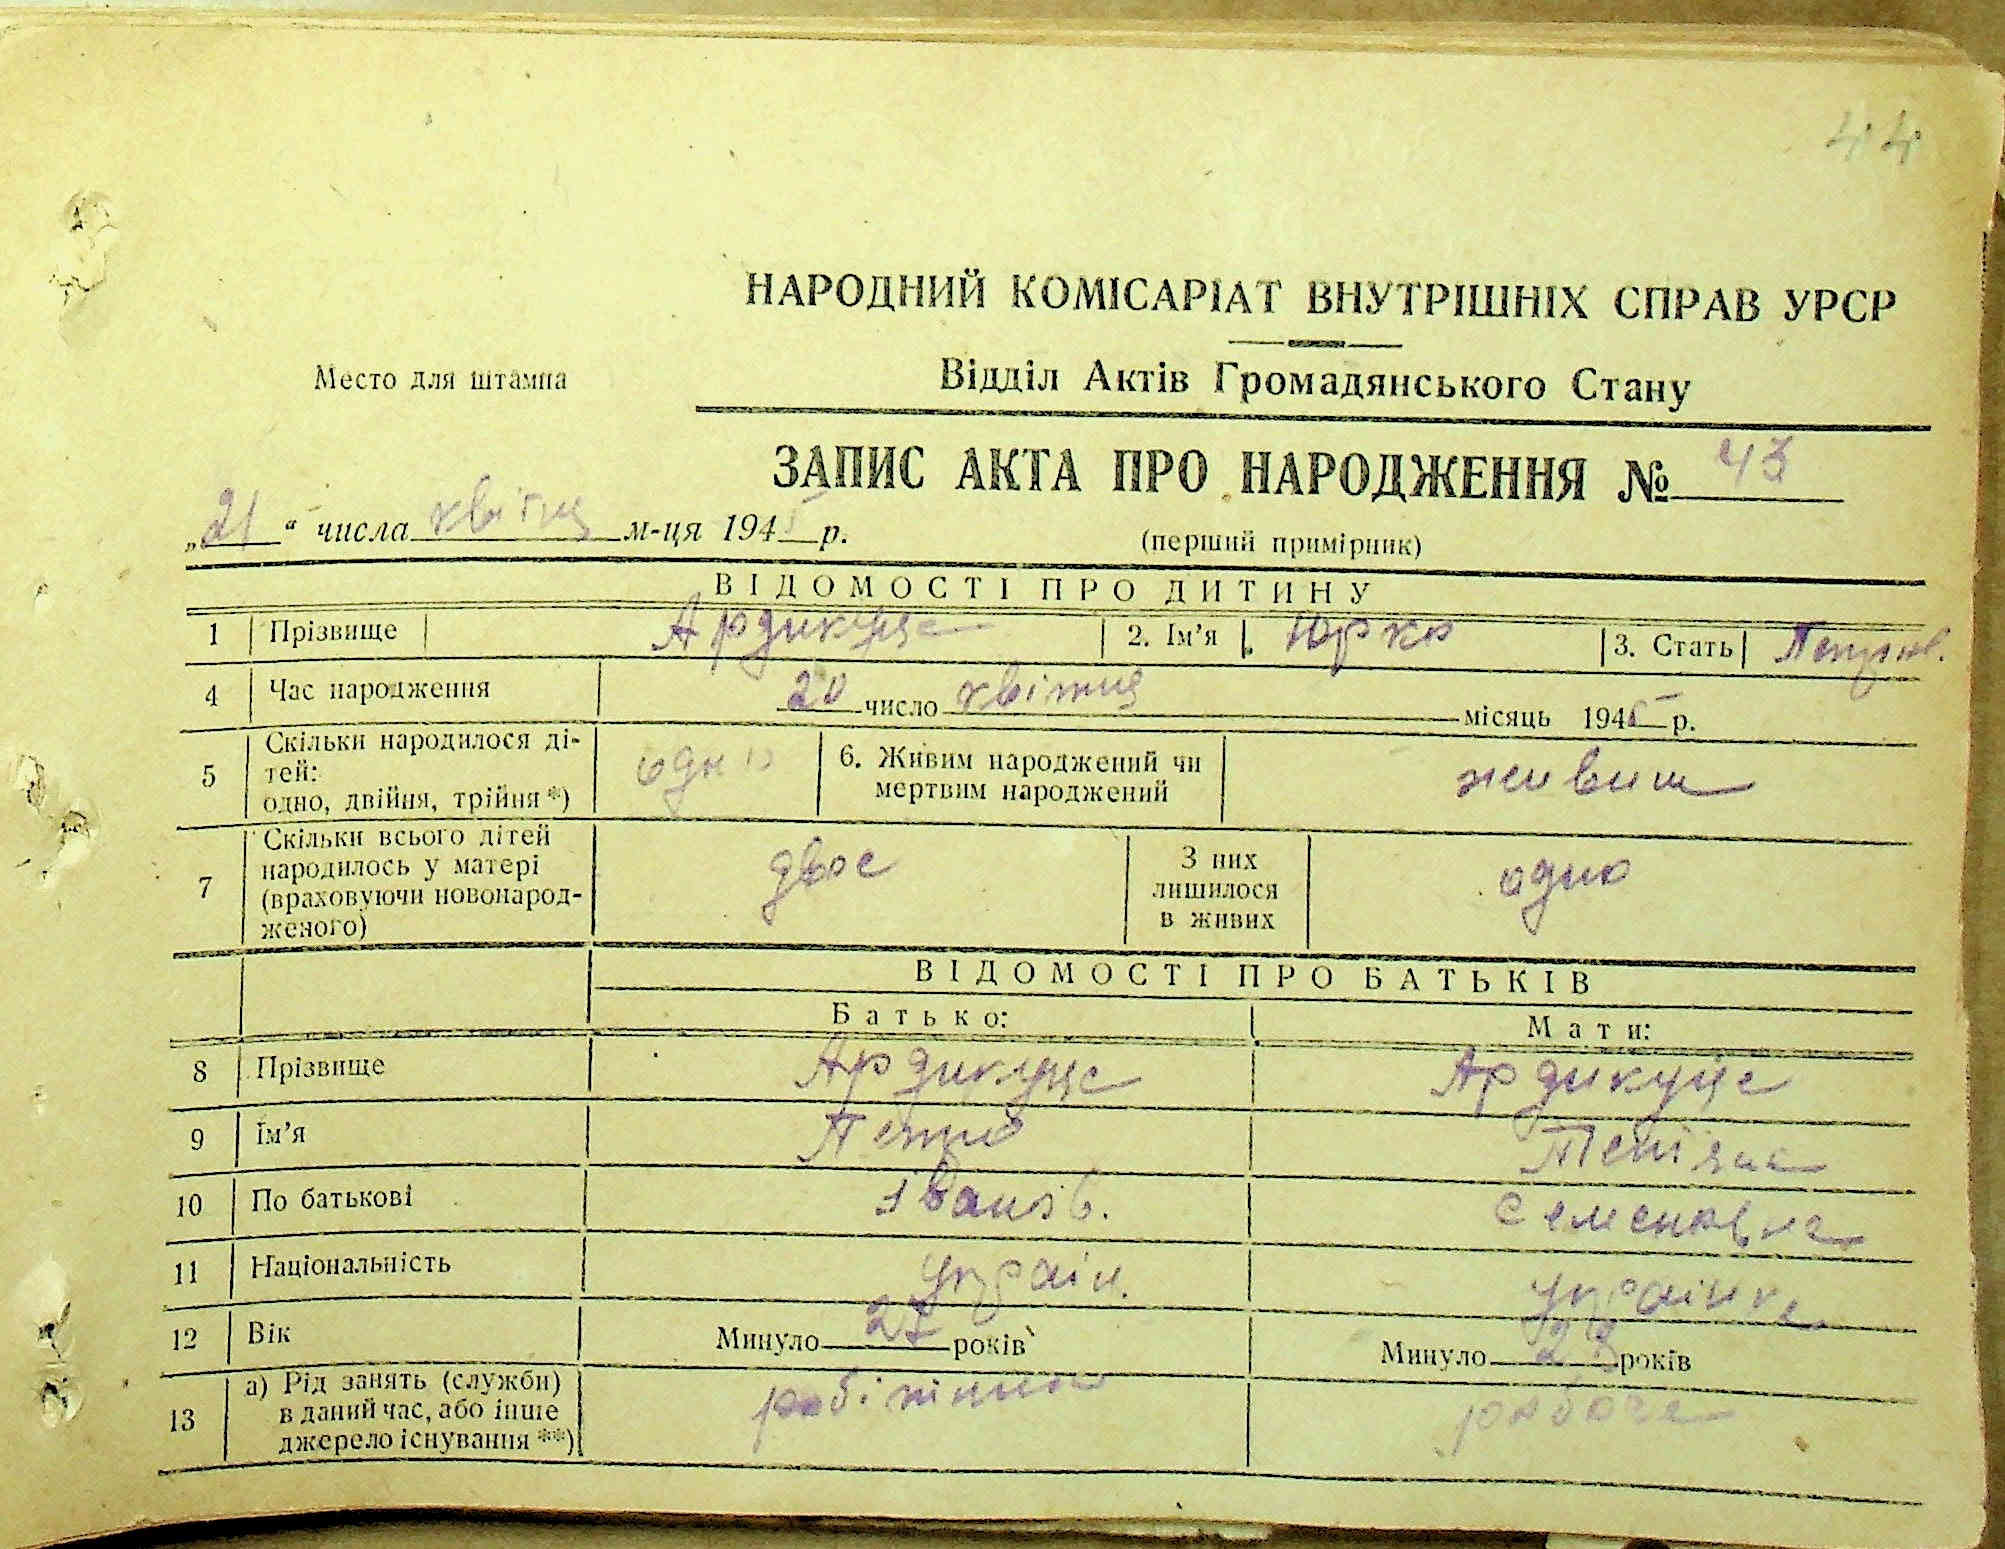 44
НАРОДНИЙ КОМІСАРІАТ ВНУТРІШНІХ СПРАВ УРСР
Место для штампа
Відділ Актів Громадянського Стану
ЗАПИС АКТА ПРО НАРОДЖЕННЯ № 43
„21“ числа квітня м-ця 1945 р.
(перший примірник)
ВІДОМОСТІ ПРО ДИТИНУ
1 Прізвище 2. Ім’я Юрко 3. Стать
4 Час народження 20 число квітня місяць 1945 р.
5 Скільки народилося ді-
тей:
одно, двійня, трійня *) одно 6. Живим народжений чи
мертвим народжений живим
7 Скільки всього дітей
народилось у матері
(враховуючи новонарод-
женого) двоє З них
лишилося
в живих одно
ВІДОМОСТІ ПРО БАТЬКІВ
Батько: Мати:
8 Прізвище
9 Ім’я Петро Тетіяна
10 По батькові Іванов. Семеновна
11 Національність україн. українка
12 Вік Минуло 27 років Минуло 23 років
13 а) Рід занять (служби)
в даний час, або інше
джерело існування **) робітник рабоча